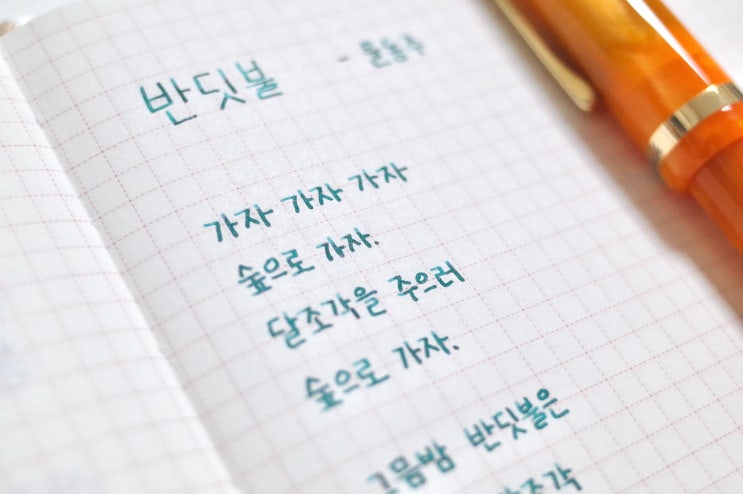 반딧불 - 윤동주
가자 가자 가자
숲으로 가자.
달조각을 주으러
숲으로 가자.
그믐밤 반딧불은
조각